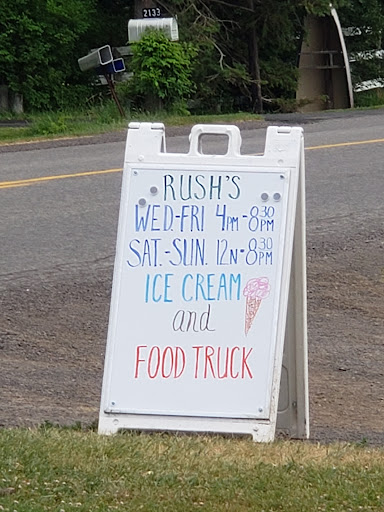 2133
RUSH'S
WED.-FRI 4PM-830PM
SAT.-SUN. 12N-830PM
ICE CREAM
and
FOOD TRUCK